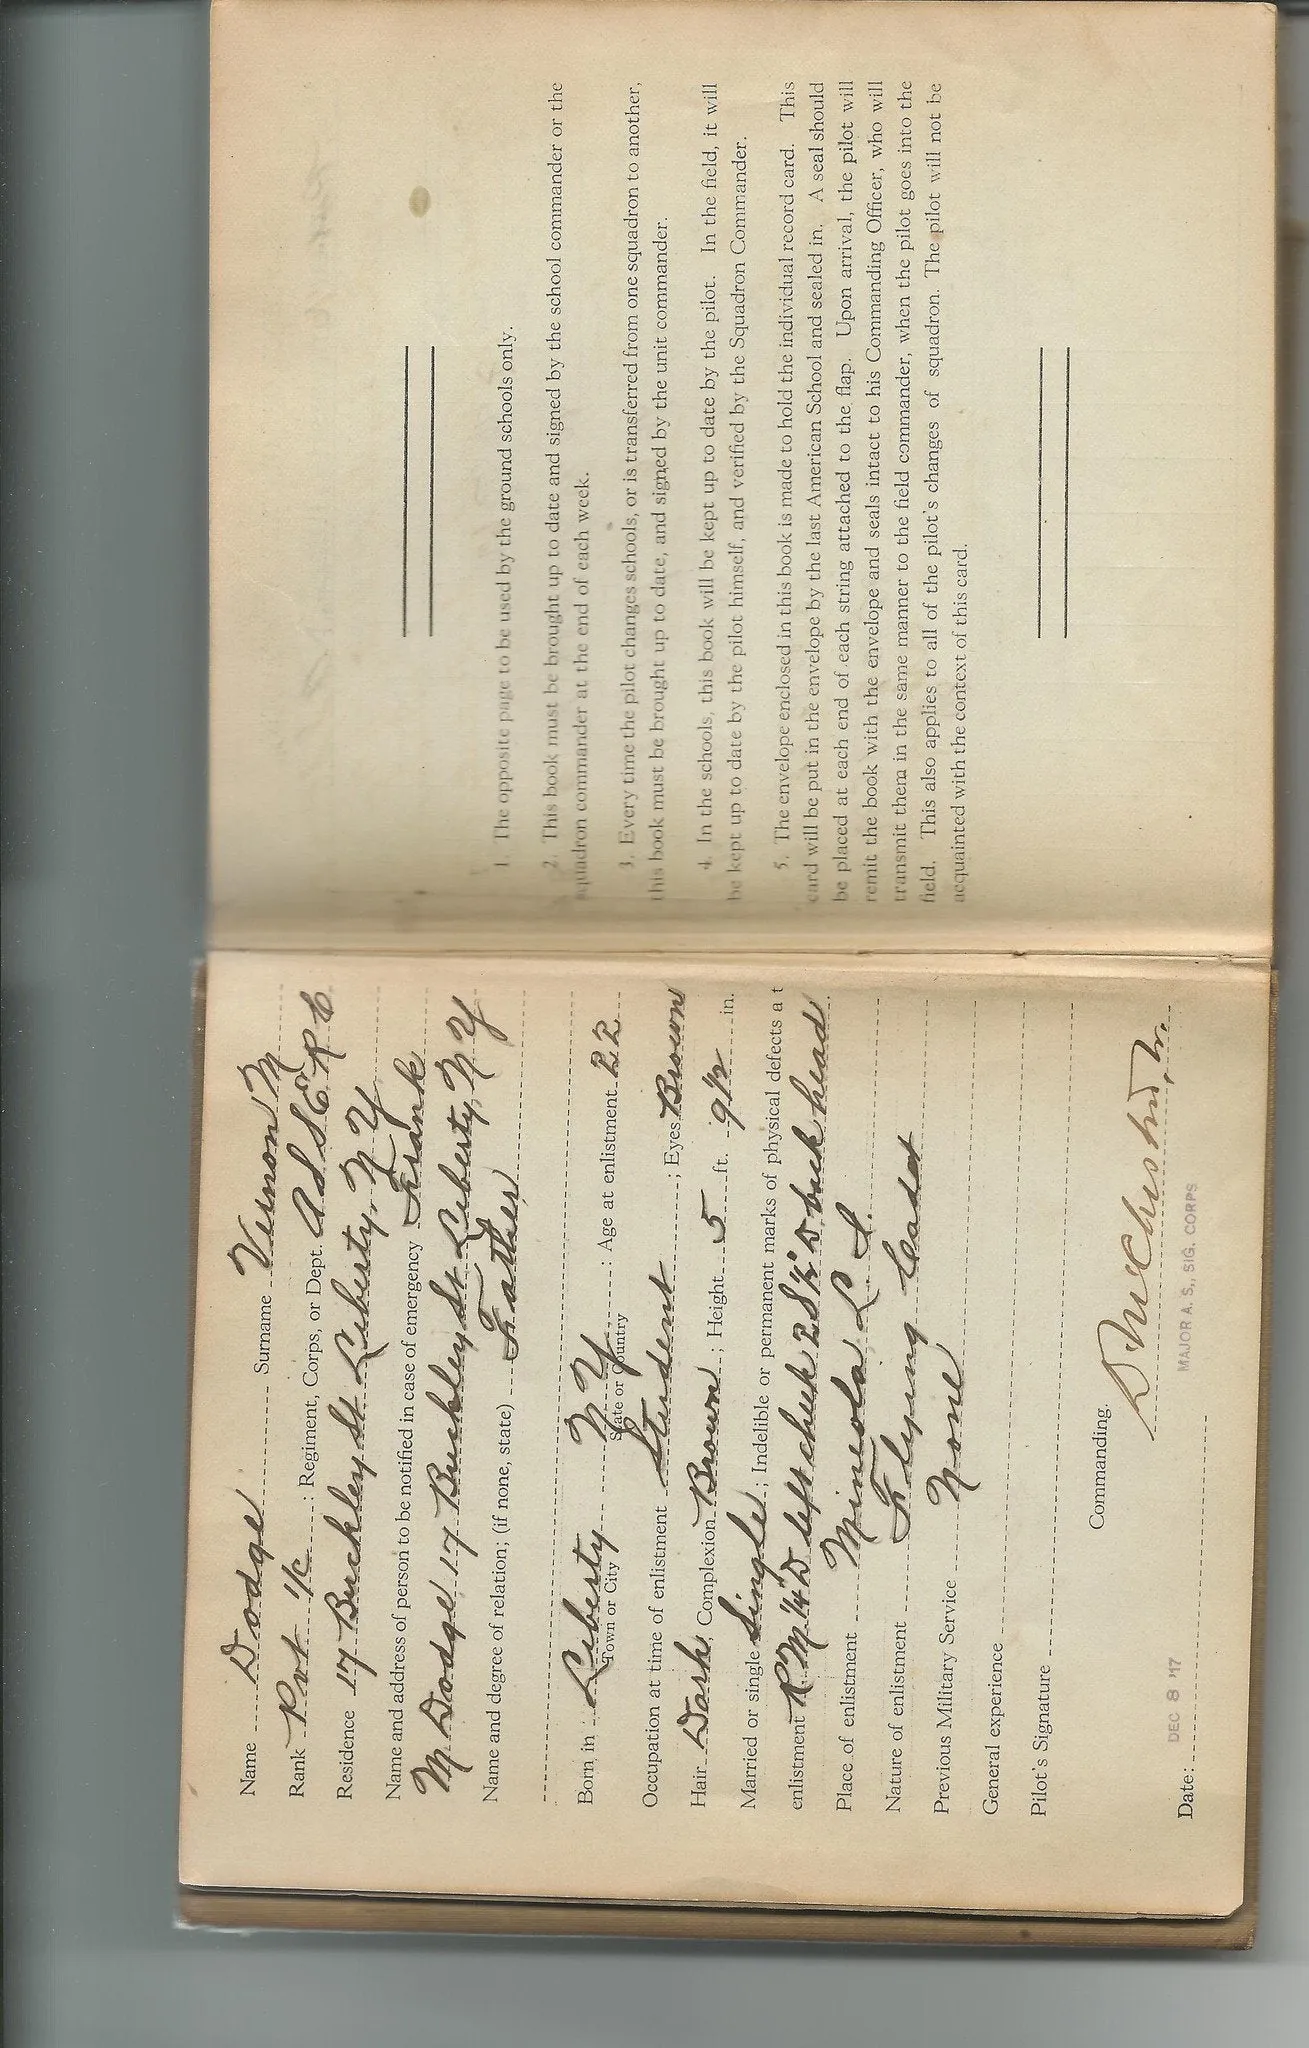 Name Dodge Surname Vernon M
Rank Pvt 1/c ; Regiment, Corps, or Dept. A S S E R C
Residence 17 Buckley St Liberty, N Y
Name and address of person to be notified in case of emergency Frank
M Dodge 17 Buckley St Liberty, N Y
Name and degree of relation; (if none, state) Father
Born in Liberty N Y : Age at enlistment 22
Town or City State or Country
Occupation at time of enlistment Student ; Eyes Brown
Hair Dark ; Complexion Brown ; Height 5 ft. 9 1/2 in.
Married or single Single ; Indelible or permanent marks of physical defects at
enlistment R M 1/4" D left cheek 2 S 1/2" D back head
Place of enlistment Mineola L I.
Nature of enlistment Flying Cadet
Previous Military Service None
General experience
Pilot's Signature
Commanding.
MAJOR A. S., SIG. CORPS
Date: DEC 8 '17
1. The opposite page to be used by the ground schools only.
2. This book must be brought up to date and signed by the school commander or the
squadron commander at the end of each week.
3. Every time the pilot changes schools, or is transferred from one squadron to another,
this book must be brought up to date, and signed by the unit commander.
4. In the schools, this book will be kept up to date by the pilot. In the field, it will
be kept up to date by the pilot himself, and verified by the Squadron Commander.
5. The envelope enclosed in this book is made to hold the individual record card. This
card will be put in the envelope by the last American School and sealed in. A seal should
be placed at each end of each string attached to the flap. Upon arrival, the pilot will
remit the book with the envelope and seals intact to his Commanding Officer, who will
transmit them in the same manner to the field commander, when the pilot goes into the
field. This also applies to all of the pilot's changes of squadron. The pilot will not be
acquainted with the context of this card.